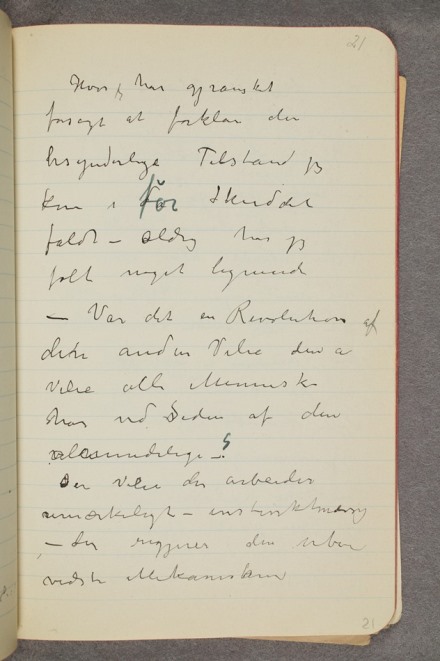 21
Hvor jeg har gransket
forsøgt at forklare den
besynderlige Tilstand jeg
kom i før Skuddet
faldt – aldrig har jeg
følt noget lignende
– Var det en Revolution af
den anden Vilie den
vilie alle Mennesker
har ved Siden af den
Den vilie der arbeider
umærkeligt – instinktmæssig
– der den
vedste Mekanisme
21